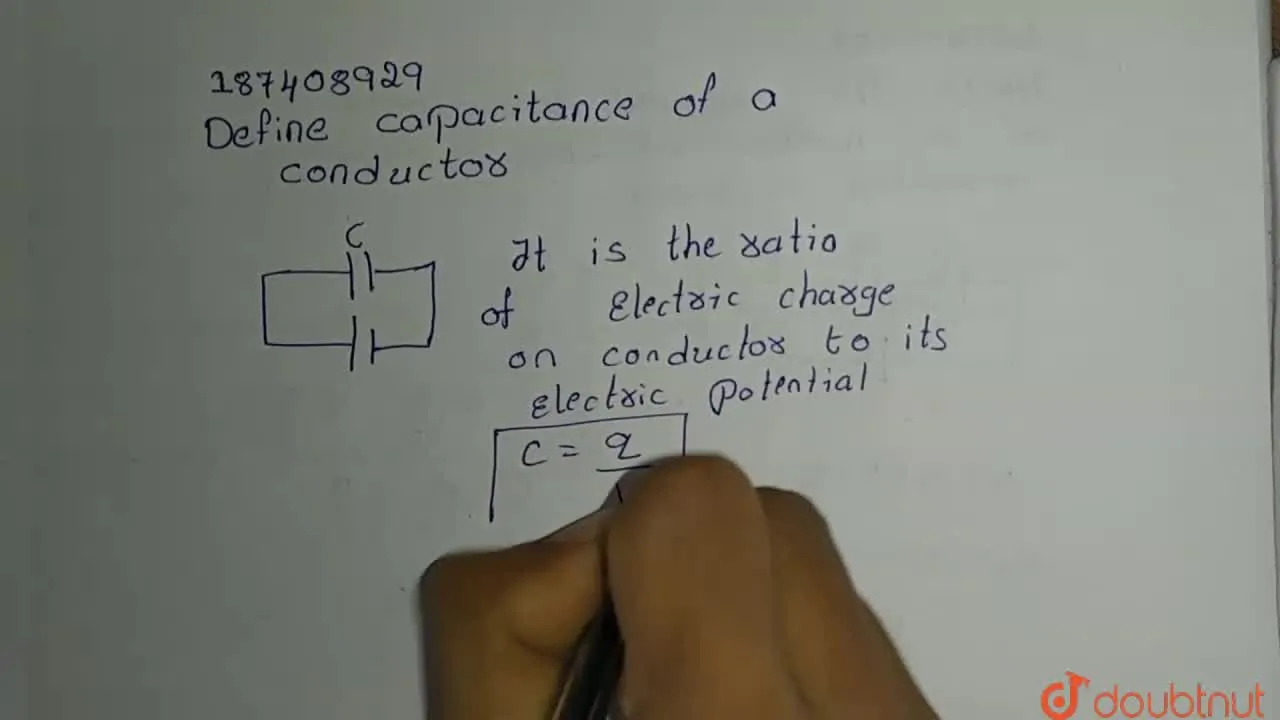 187408929
Define capacitance of a
conductor
C
It is the ratio
of Electric charge
on conductor to its
electric potential
C = q
doubtnut